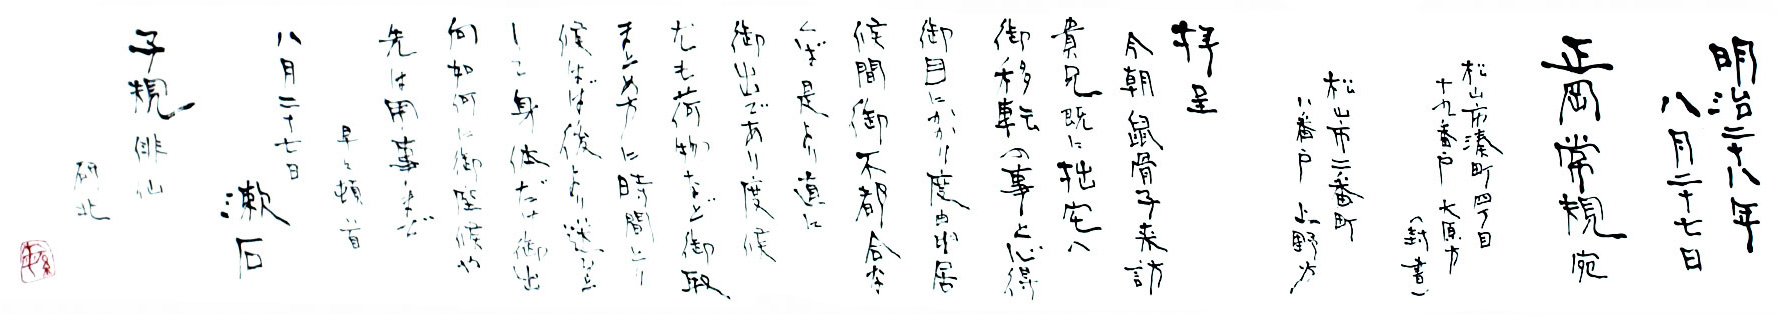 明治二十八年
八月二十七日
正岡常規宛
松山市湊町四丁目
十九番戸 大原方
(封書)
松山市二番町
八番戸 上野方
拝呈
今朝鼠骨子来訪
貴兄既に拙宅へ
御移転の事と心得
御目にかかり度由申居
候間御不都合な
くば是より直に
御出であり度候
尤も荷物など御取
まとめ方に時間とり
候はば後より送ると
して身体だけ御出
向如何に御座候や
先は用事まで
早々頓首
八月二十七日
漱石
子規俳仙
研北